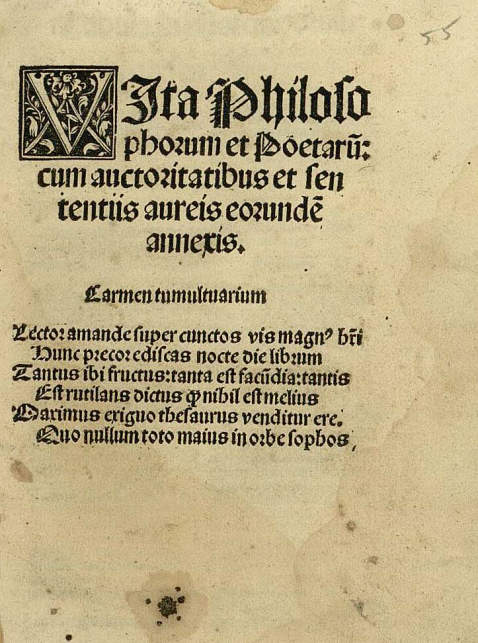 55
VIta Philoso
phorum et Poetarū:
cum auctoritatibus et sen
tentiis aureis eorundē
annexis.
Carmen tumultuarium
Lector amande super cunctos vis magnꝰ hr̄i
Hunc precor ediscas nocte die librum
Tantus ibi fructus: tanta est facūdia: tantis
Est rutilans dictus ꝙ nihil est melius
Maximus exiguo thesaurus venditur ere.
Quo nullum toto maius in orbe sophos,